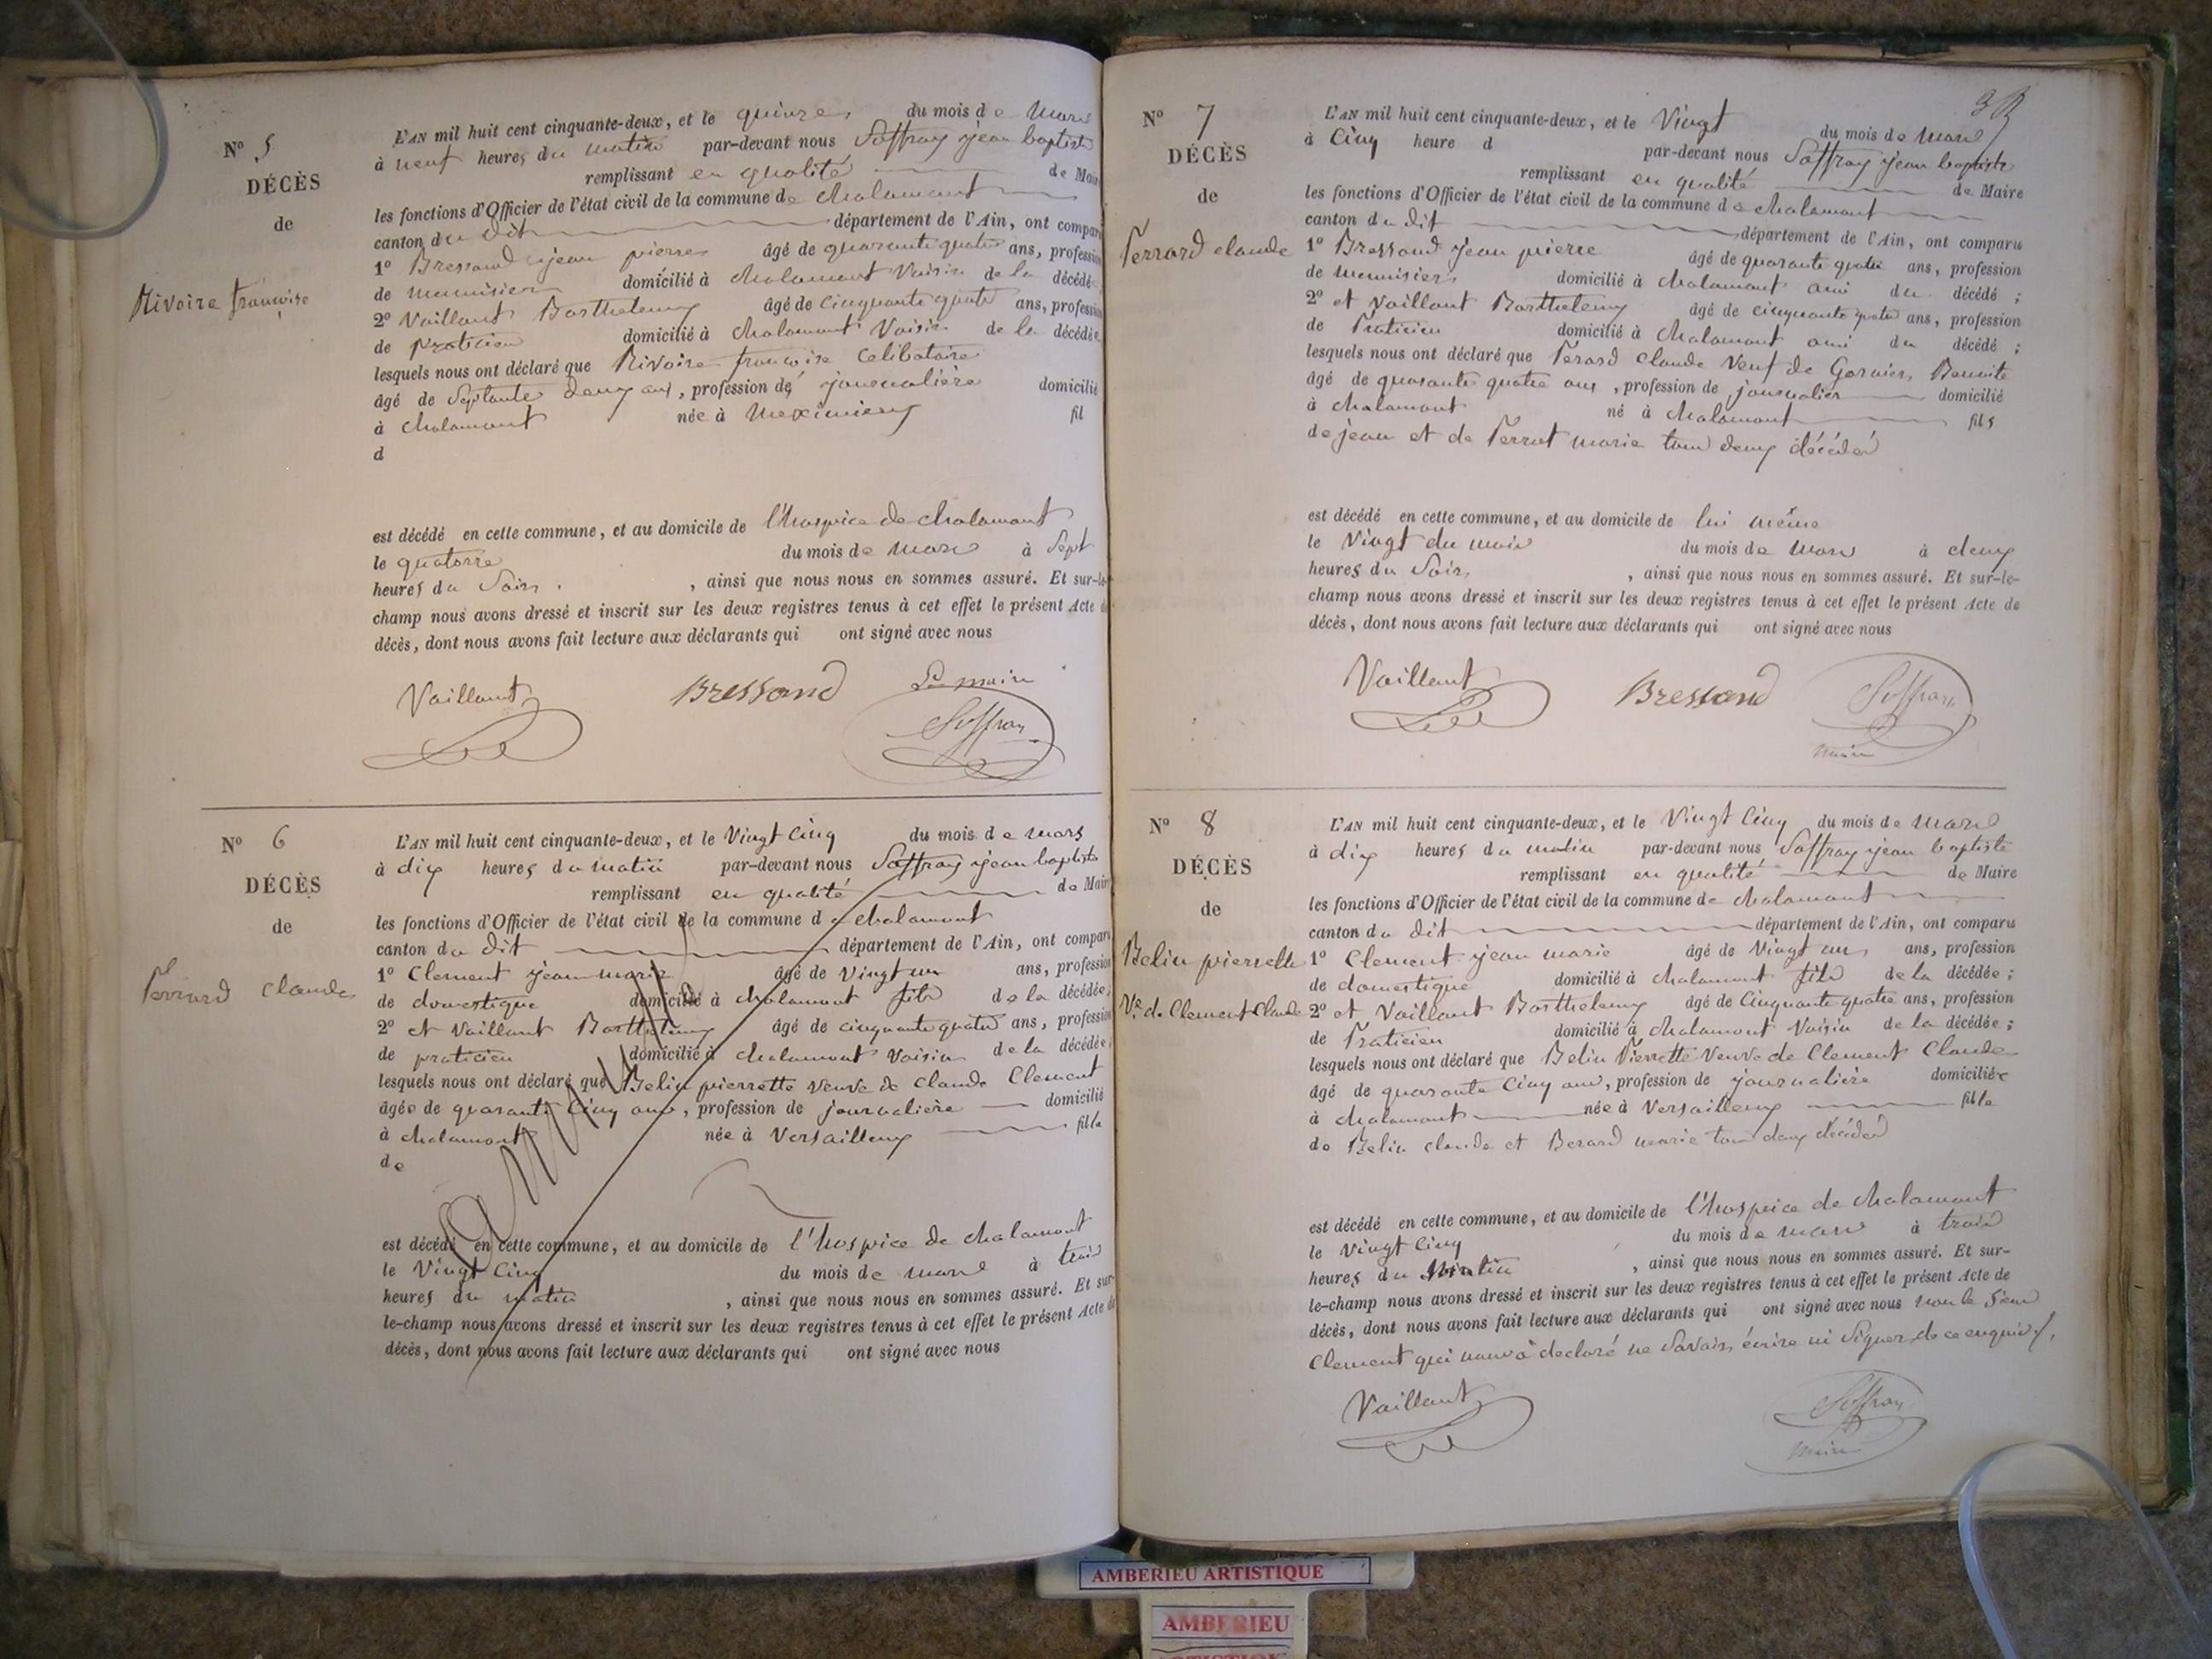 N° 5
DÉCÈS
de
Rivoire françoise
L'AN mil huit cent cinquante-deux, et le quinze du mois de Mars
à neuf heures du matin par-devant nous Soffray jean baptiste
remplissant en qualité de Maire
les fonctions d'Officier de l'état civil de la commune de chalamont
canton du dit département de l'Ain, ont comparu
1° Bressand jean pierre âgé de quarante quatre ans, profession
de menuisier domicilié à chalamont Voisin de la décédée
2° Vaillant Barthelemy âgé de cinquante quatre ans, profession
de praticien domicilié à chalamont Voisin de la décédée
lesquels nous ont déclaré que Rivoire françoise celibataire
âgé de Septante deux ans, profession de journalière domicilié
à chalamont née à Meximieux fil
d
est décédé en cette commune, et au domicile de l'hospice de chalamont
le quatorze du mois de mars à Sept
heures du Soir , ainsi que nous nous en sommes assuré. Et sur-le-
champ nous avons dressé et inscrit sur les deux registres tenus à cet effet le présent Acte de
décès, dont nous avons fait lecture aux déclarants qui ont signé avec nous
Vaillant Bressand Le maire
Soffray
N° 6
DÉCÈS
de
Ferrard claude
L'AN mil huit cent cinquante-deux, et le Vingt cinq du mois de mars
à dix heures du matin par-devant nous Soffray jean baptiste
remplissant en qualité de Maire
les fonctions d'Officier de l'état civil de la commune de chalamont
canton du dit département de l'Ain, ont comparu
1° Clement jean marie âgé de Vingt un ans, profession
de domestique domicilié à chalamont fils de la décédée;
2° et Vaillant Barthelemy âgé de cinquante quatre ans, profession
de praticien domicilié à chalamont Voisin de la décédée;
lesquels nous ont déclaré que Belin pierrette veuve de Claude Clement
âgée de quarante cinq ans, profession de journalière domicilié
à chalamont née à Versailleux fille
de
est décédé en cette commune, et au domicile de l'hospice de chalamont
le Vingt cinq du mois de mars à trois
heures du matin , ainsi que nous nous en sommes assuré. Et sur-
le-champ nous avons dressé et inscrit sur les deux registres tenus à cet effet le présent Acte de
décès, dont nous avons fait lecture aux déclarants qui ont signé avec nous
Annullé
N° 7
DÉCÈS
de
Ferrard claude
L'AN mil huit cent cinquante-deux, et le Vingt du mois de mars
à Cinq heure d par-devant nous Soffray jean baptiste
remplissant en qualité de Maire
les fonctions d'Officier de l'état civil de la commune de chalamont
canton du dit département de l'Ain, ont comparu
1° Bressand jean pierre âgé de quarante quatre ans, profession
de menuisier domicilié à chalamont ami du décédé ;
2° et Vaillant Barthelemy âgé de cinquante quatre ans, profession
de Praticien domicilié à chalamont ami du décédé ;
lesquels nous ont déclaré que Ferard claude Veuf de Garnier Benoite
âgé de quarante quatre ans, profession de journalier domicilié
à chalamont né à chalamont fils
de jean et de Ferrat marie tous deux décédés
est décédé en cette commune, et au domicile de lui même
le Vingt du mois du mois de mars à deux
heures du Soir , ainsi que nous nous en sommes assuré. Et sur-le-
champ nous avons dressé et inscrit sur les deux registres tenus à cet effet le présent Acte de
décès, dont nous avons fait lecture aux déclarants qui ont signé avec nous
Vaillant Bressand Soffray
maire
N° 8
DÉCÈS
de
Belin pierrette
Ve de Clement Claude
L'AN mil huit cent cinquante-deux, et le Vingt Cinq du mois de mars
à dix heures du matin par-devant nous Soffray jean baptiste
remplissant en qualité de Maire
les fonctions d'Officier de l'état civil de la commune de chalamont
canton du dit département de l'Ain, ont comparu
1° Clement jean marie âgé de Vingt un ans, profession
de domestique domicilié à chalamont fils de la décédée;
2° et Vaillant Barthelemy âgé de Cinquante quatre ans, profession
de Praticien domicilié à chalamont Voisin de la décédée;
lesquels nous ont déclaré que Belin Pierrette Veuve de Clement Claude
âgé de quarante Cinq ans, profession de journalière domiciliée
à chalamont née à Versailleux fille
de Belin claude et Berard marie tous deux décédés
est décédé en cette commune, et au domicile de l'hospice de chalamont
le Vingt Cinq du mois de mars à trois
heures du Matin , ainsi que nous nous en sommes assuré. Et sur-
le-champ nous avons dressé et inscrit sur les deux registres tenus à cet effet le présent Acte de
décès, dont nous avons fait lecture aux déclarants qui ont signé avec nous non le Sieur
Clement qui nous a declaré ne Savoir écrire ni Signer de ce enquis
Vaillant Soffray
maire
AMBERIEU ARTISTIQUE
AMBERIEU
ARTISTIQUE